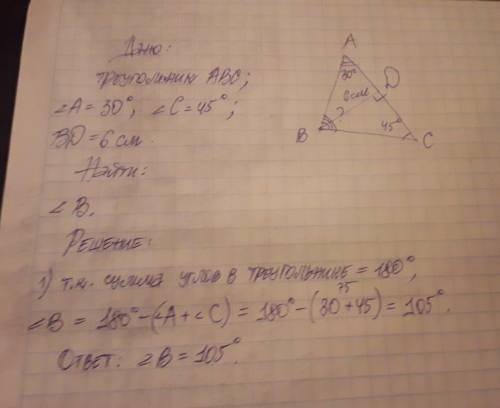 Дано:
треугольник ABC;
∠A = 30°, ∠C = 45°;
BD = 6 см.
Найти:
∠B.
Решение:
1) т.к. сумма углов в треугольнике = 180°,
75
∠B = 180° - (∠A + ∠C) = 180° - (30 + 45) = 105°.
Ответ: ∠B = 105°.
A
30°
D
6 см
?
B
45°
C